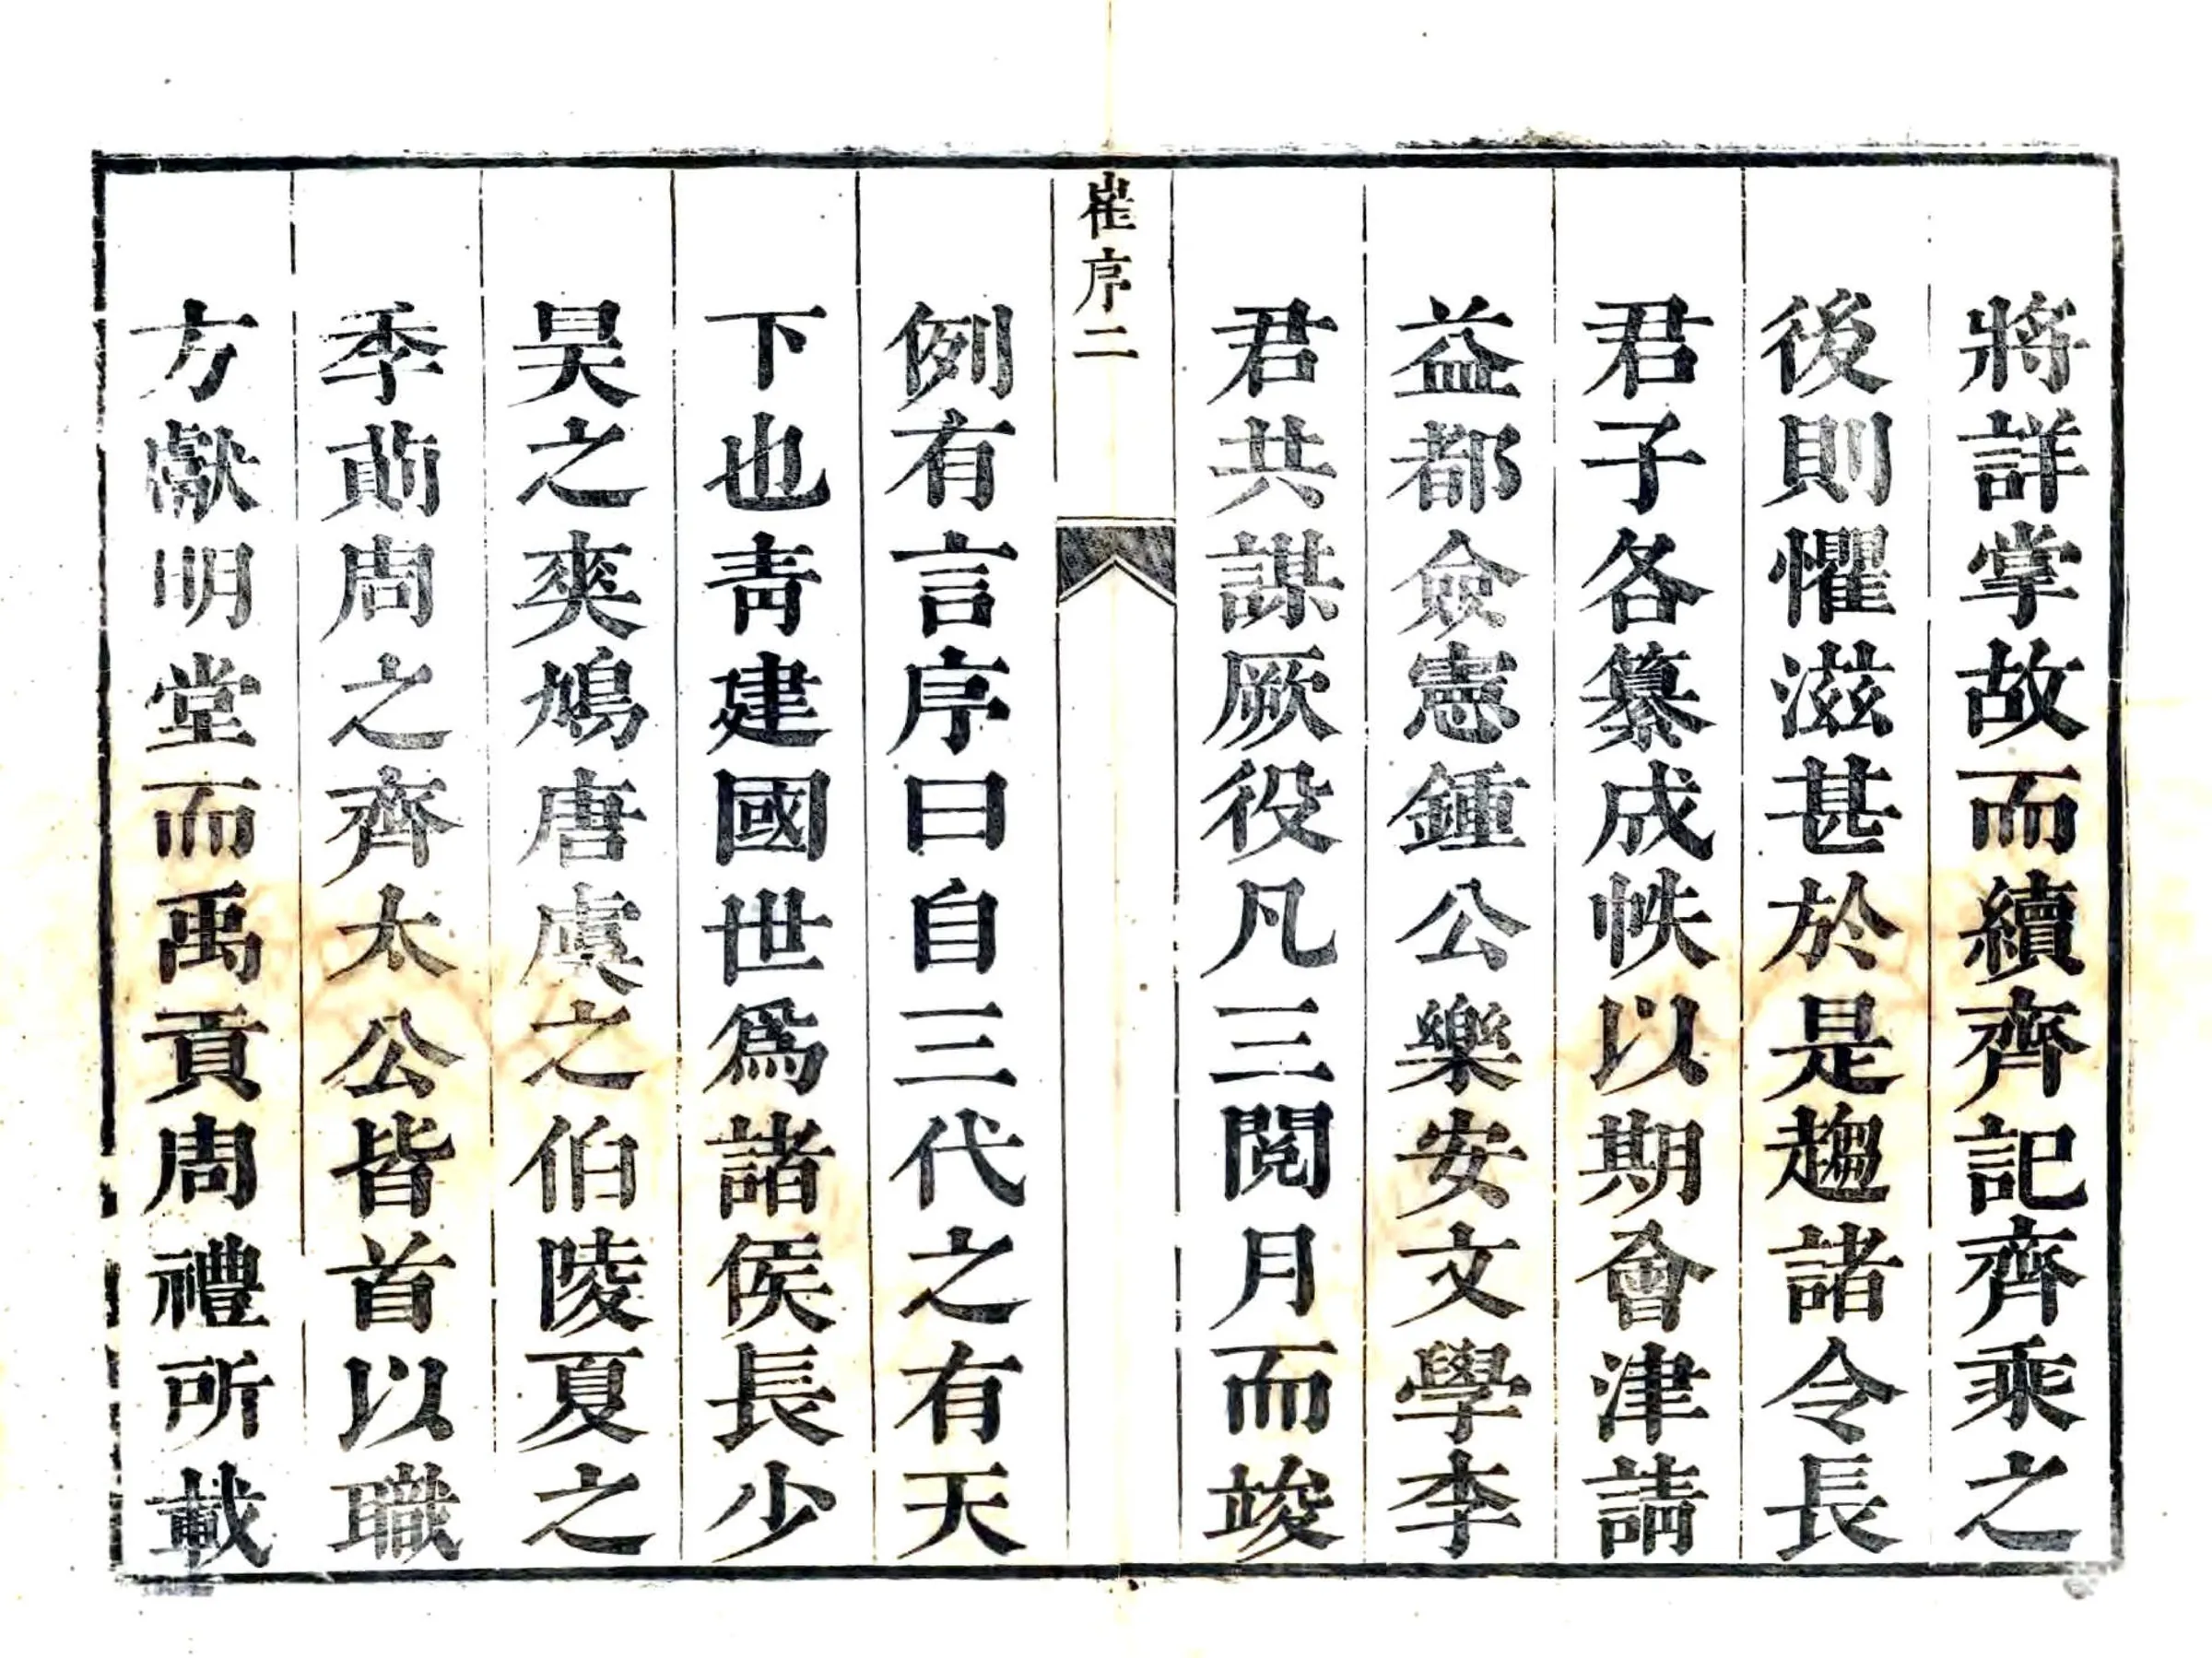 將詳掌故而續齊記齊乘之
後則懼滋甚於是趨諸令長
君子各纂成帙以期會津請
益都僉憲鍾公樂安文學李
君共謀厥役凡三閱月而竣
崔序二
例有言序曰自三代之有天
下也靑建國世爲諸侯長少
昊之爽鳩唐虞之伯陵夏之
季萴周之齊太公皆首以職
方獻明堂而禹貢周禮所載